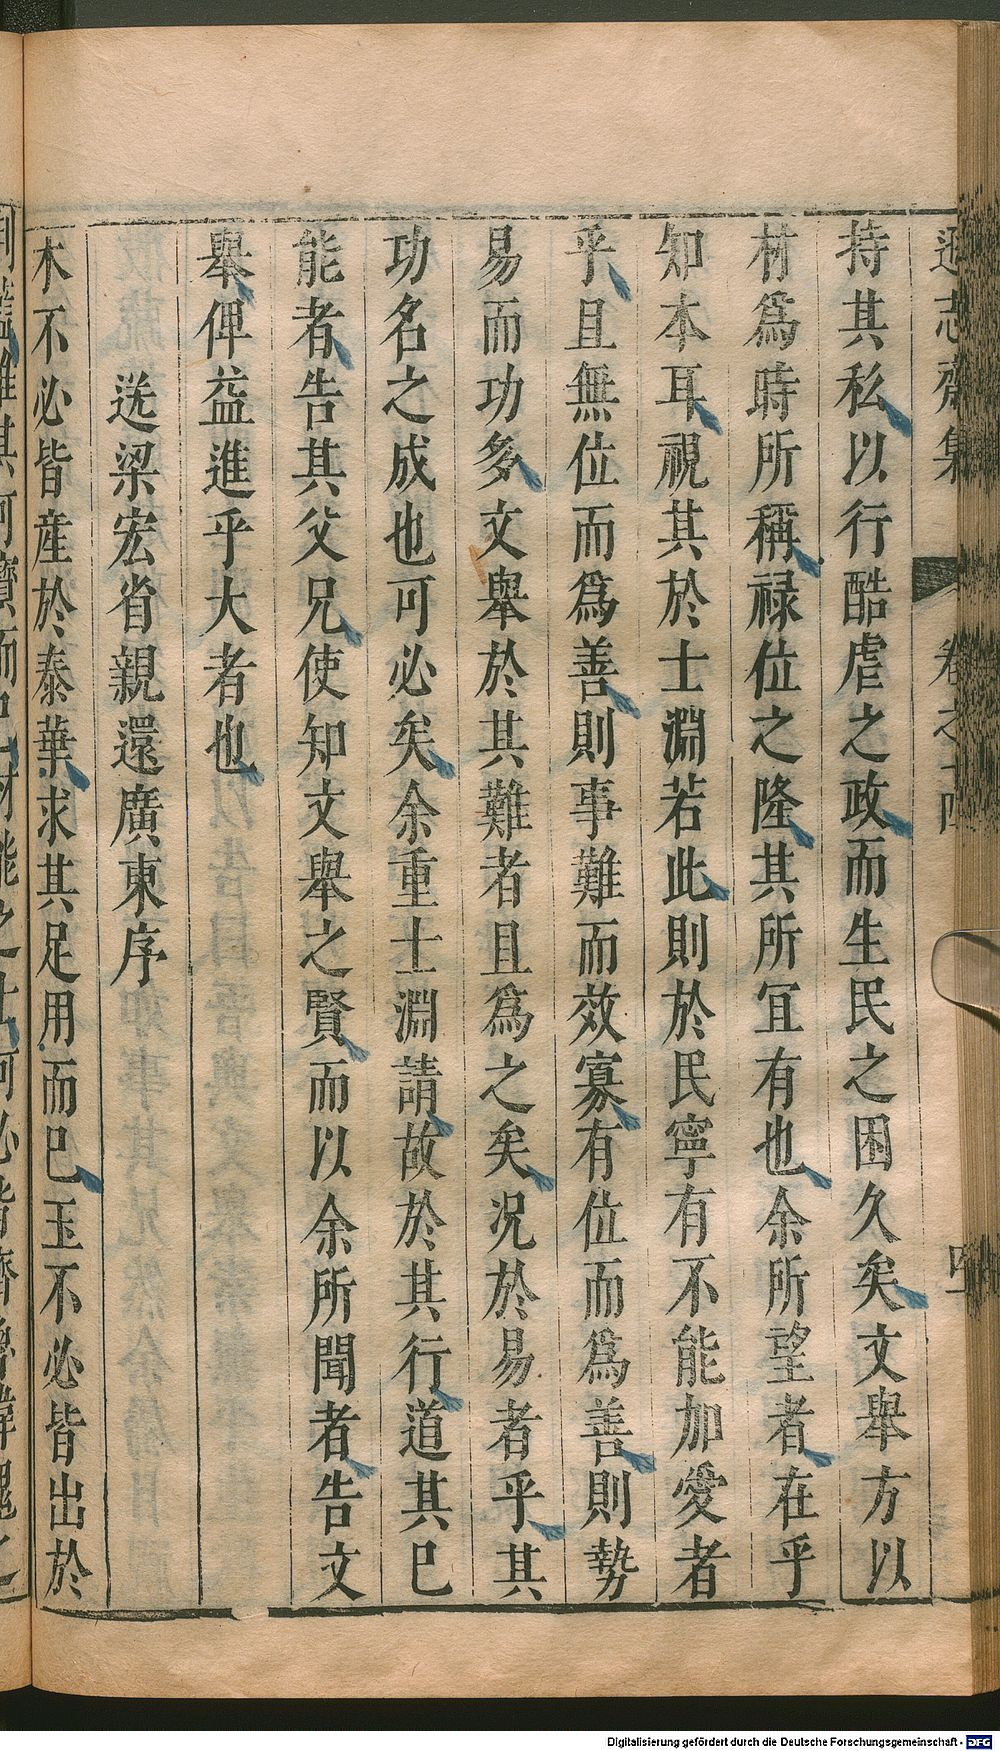 遜志齋集 卷之十四 四
持其私以行酷虐之政而生民之困久矣文舉方以
材爲時所稱祿位之隆其所宜有也余所望者在乎
知本耳視其於士淵若此則於民寧有不能加愛者
乎且無位而爲善則事難而效寡有位而爲善則勢
易而功多文舉於其難者且爲之矣況於易者乎其
功名之成也可必矣余重士淵請故於其行道其已
能者告其父兄使知文舉之賢而以余所聞者告文
舉俾益進乎大者也
送梁宏省親還廣東序
木不必皆產於泰華求其足用而已玉不必皆出於
Digitalisierung gefördert durch die Deutsche Forschungsgemeinschaft - DFG